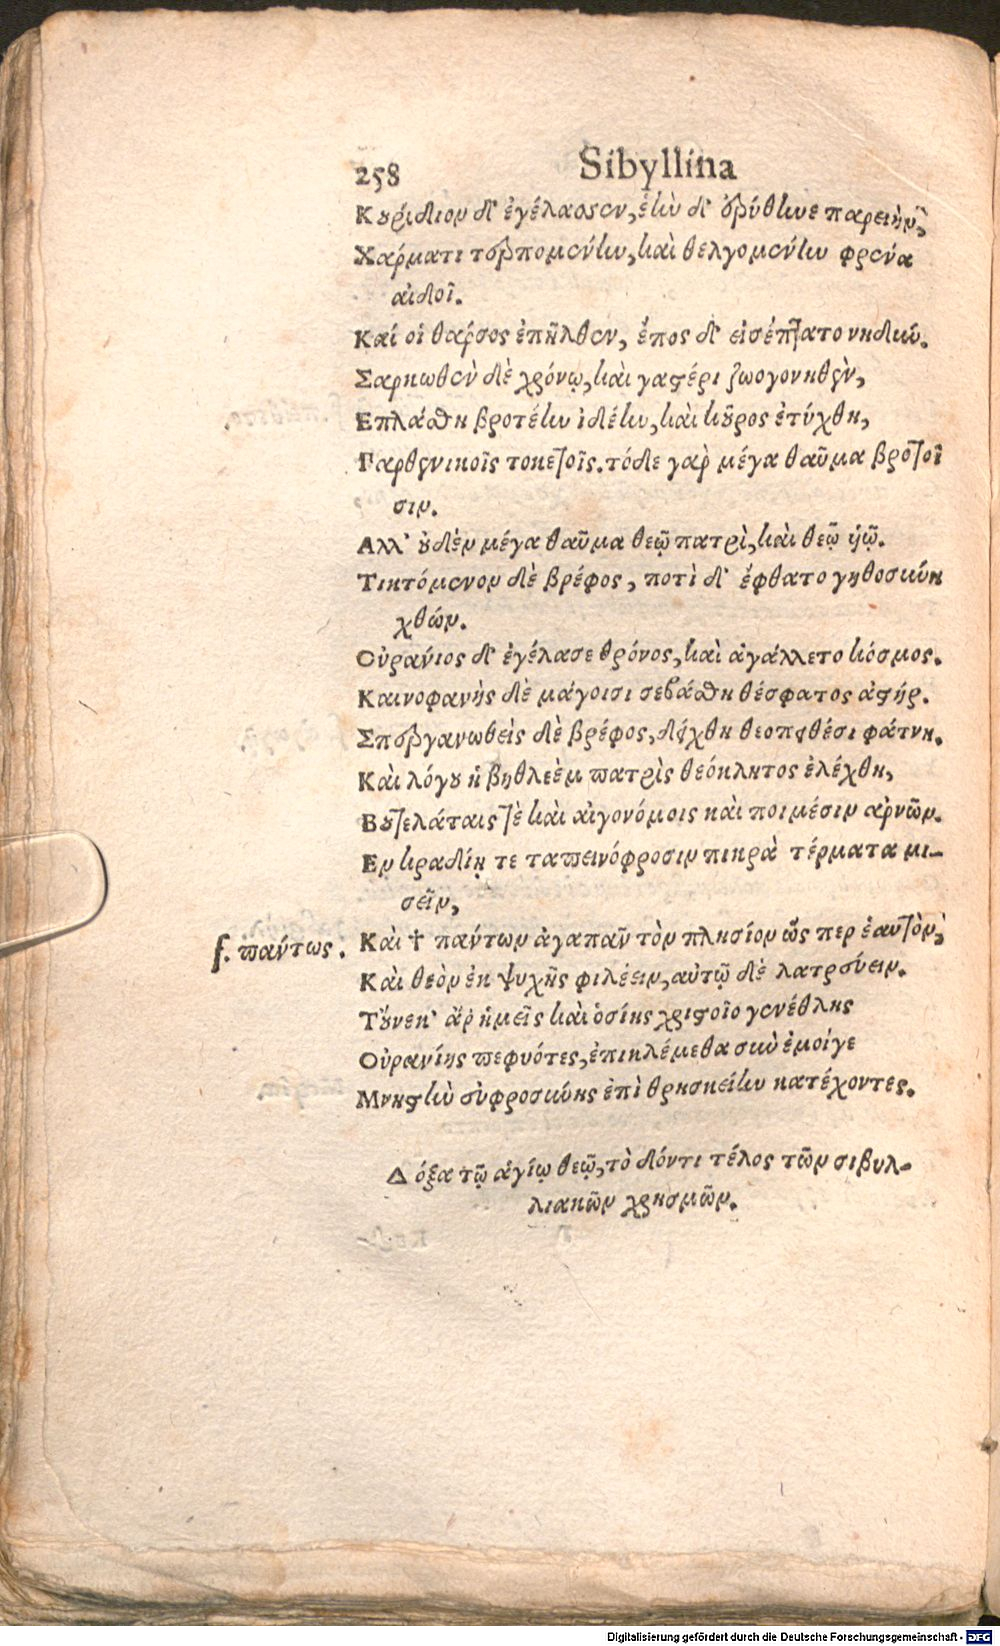 258 Sibyllina
Κουρίδιον δ' ἐγέλασσεν, ἑὴν δ' ἐρύθηνε παρειὴν,
Χάρματι τερπομένην, καὶ θελγομένην φρένα
αἰδοῖ.
Καί οἱ θάρσος ἐπῆλθεν, ἔπος δ' εἰσέπτατο νηδιύ.
Σαρκωθὲν δὲ χρόνῳ, καὶ γαστέρι ζωογονηθὲν,
Επλάσθη βροτέην ἰδέην, καὶ κοῦρος ἐτύχθη,
Παρθενικοῖς τοκετοῖς. τόδε γὰρ μέγα θαῦμα βροτοῖ
σιν.
Αλλ' οὐδὲν μέγα θαῦμα θεῷ πατρὶ, καὶ θεῷ ὑῷ.
Τικτόμενον δὲ βρέφος, ποτὶ δ' ἔφθατο γηθοσύνη
χθών.
Οὐράνιος δ' ἐγέλασε θρόνος, καὶ ἀγάλλετο κόσμος.
Καινοφανὴς δὲ μάγοισι σεβάσθη θέσφατος ἀστήρ.
Σπεργανωθεὶς δὲ βρέφος, δείχθη θεοπειθέσι φάτνη.
Καὶ λόγου ἡ βηθλεὲμ πατρὶς θεόκλητος ἐλέχθη,
Βουτελάταις τὲ καὶ αἰγονόμοις καὶ ποιμέσιν ἀρνῶν.
Εν κραδίῃ τε ταπεινόφροσιν πικρὰ τέρματα μι-
σεῖν,
f. πάντως. Καὶ † πάντων ἀγαπᾶν τὸν πλησίον ὥς περ ἑαυτὸν,
Καὶ θεὸν ἐκ ψυχῆς φιλέειν, αὐτῷ δὲ λατρεύειν.
Τοὔνεκ' ἄρ' ἡμεῖς καὶ ὁσίης χριστοῖο γενέθλης
Οὐρανίης πεφυότες, ἐπικλέμεθα σὺ ἐμοίγε
Μνηστὺ ὐφροσύνης ἐπὶ θρησκείην κατέχοντες.
Δόξα τῷ ἁγίῳ θεῷ, τὸ δόντι τέλος τῶν σιβυλ-
λιακῶν χρησμῶν.
Digitalisierung gefördert durch die Deutsche Forschungsgemeinschaft - DFG